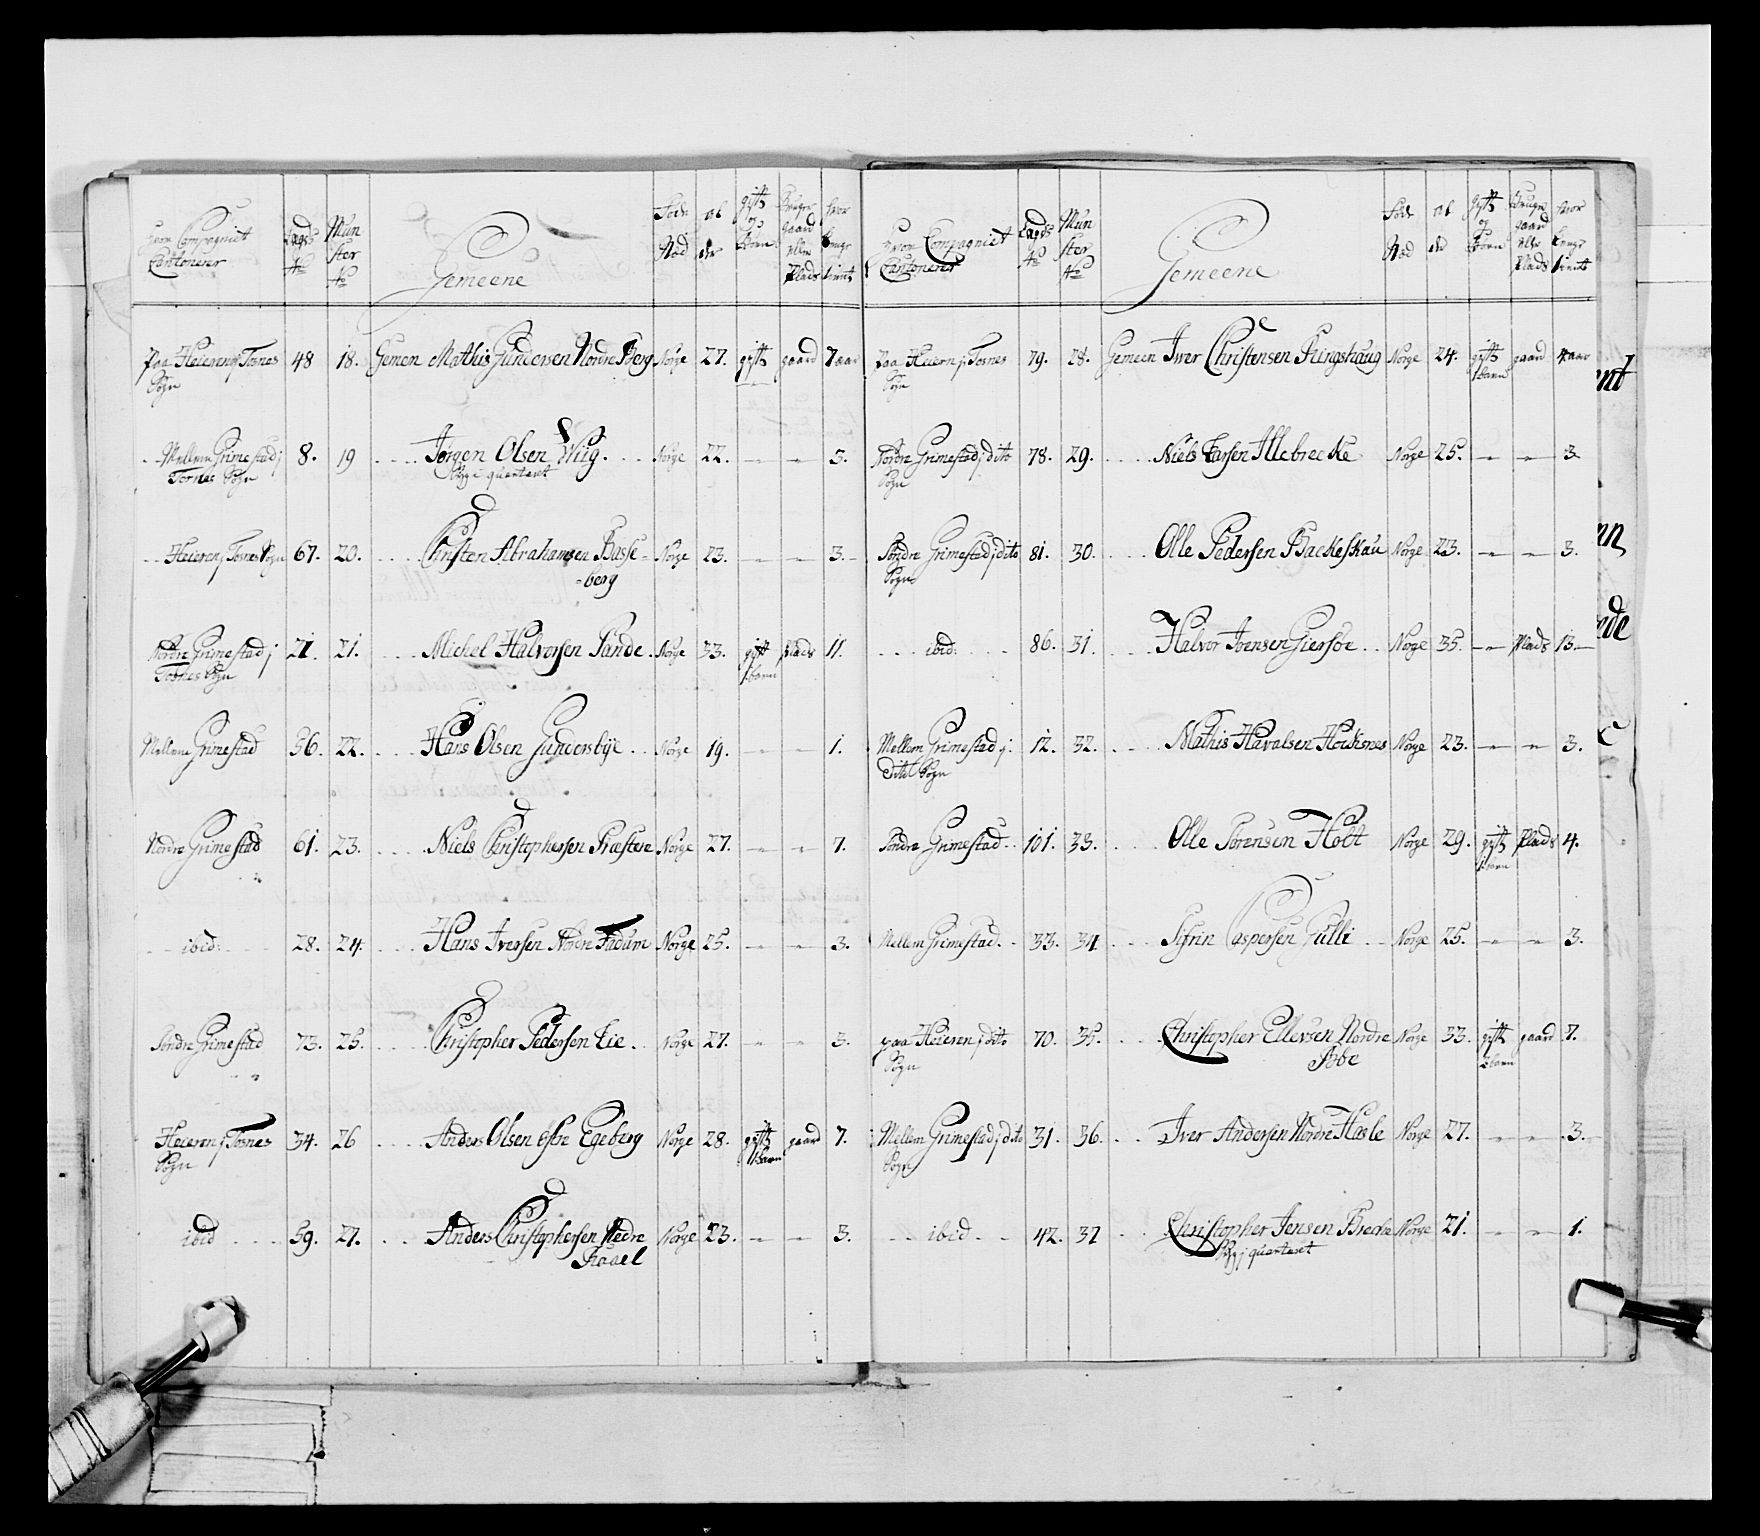 hvor Compagniet Cantonerer | Lægds No | Mun ster No | Gemeene | Føde Stæd | Al der | gift og Børn | Bruger gaard eller Plads | hvor lenge tient
paa Heieren j Tosnes Sogn | 48 | 18. | Gemen Mathis Gundersen Nordre Berg | Norge | 27. | gift | gaard | 7 aar
Mellem Grimestad j Tosnes Sogn | 8. | 19 | Jørgen Olsen Wiig. | Norge | 22. | - | - | 3.
Syg i quarteret
Heieren j Tosnes Sogn | 67. | 20. | Christen Abrahamsen Basse- | Norge | 23. | - | - | 3.
-berg
Nordre Grimestad j Tosnes Sogn | 21. | 21. | Michel Halvorsen Sande. | Norge | 33. | gift 1 barn | Plads | 11.
Mellem Grimestad | 56. | 22. | Hans Olsen Gundersbye | Norge | 19. | - | - | 1.
Nordre Grimestad | 61. | 23. | Niels Christophersen Præstere | Norge | 27. | - | - | 7.
ibid: | 28. | 24. | Hans Iversen Nordre Fadum | Norge | 25. | - | - | 3.
Søndre Grimestad | 73. | 25. | Christopher Pedersen Lie. | Norge | 27. | - | - | 3.
Heieren j Tosnes Sogn | 34. | 26 | Anders Olsen Efre Egeberg | Norge | 28. | gift 1 barn | gaard | 7.
ibid | 59. | 27. | Anders Christophersen Nedre | Norge | 23. | - | - | 3.
hvor Compagniet Cantonerer | Lægds No | Mun ster No | Gemeene | Føde Stæd | Al der | gift og Børn | Bruger gaard eller Plads | hvor lenge tient
paa Heiern j Tosnes Sogn | 79. | 28. | Gemeen Iver Christensen Ringshaug | Norge | 24. | gift 1 barn | gaard | 4 aar
Nordre Grimestad j dito Sogn | 78. | 29. | Niels Larsen Illebrecke | Norge | 25. | - | - | 3.
Søndre Grimestad j dito Sogn | 81. | 30. | Olle Pedersen Backeskau | Norge | 23. | - | - | 3.
ibid: | 86. | 31. | Halvor Joensen Giersøe | Norge | 35. | - | Plads | 13.
Mellem Grimestad j dito Sogn | 12. | 32. | Mathis Havalsen | Norge | 23. | - | - | 3.
Søndre Grimestad | 101. | 33. | Olle Sørensen Holt | Norge | 29. | gift 1 barn | Plads | 4.
Mellem Grimestad. | 33. | 34 | Sifrin Caspersen Gulli | Norge | 25. | - | - | 3.
paa Heieren j dito Sogn | 70. | 35. | Christopher Ellevsen Nordre | Norge | 33. | gift 2 barn | gaard | 7.
Bøe
Mellem Grimestad j dito Sogn | 31. | 36. | Iver Andersen Nordre Hasle | Norge | 27. | - | - | 3.
ibid | 42. | 37 | Christopher Jensen Brecke | Norge | 21. | - | - | 1.
Syg j quarteret